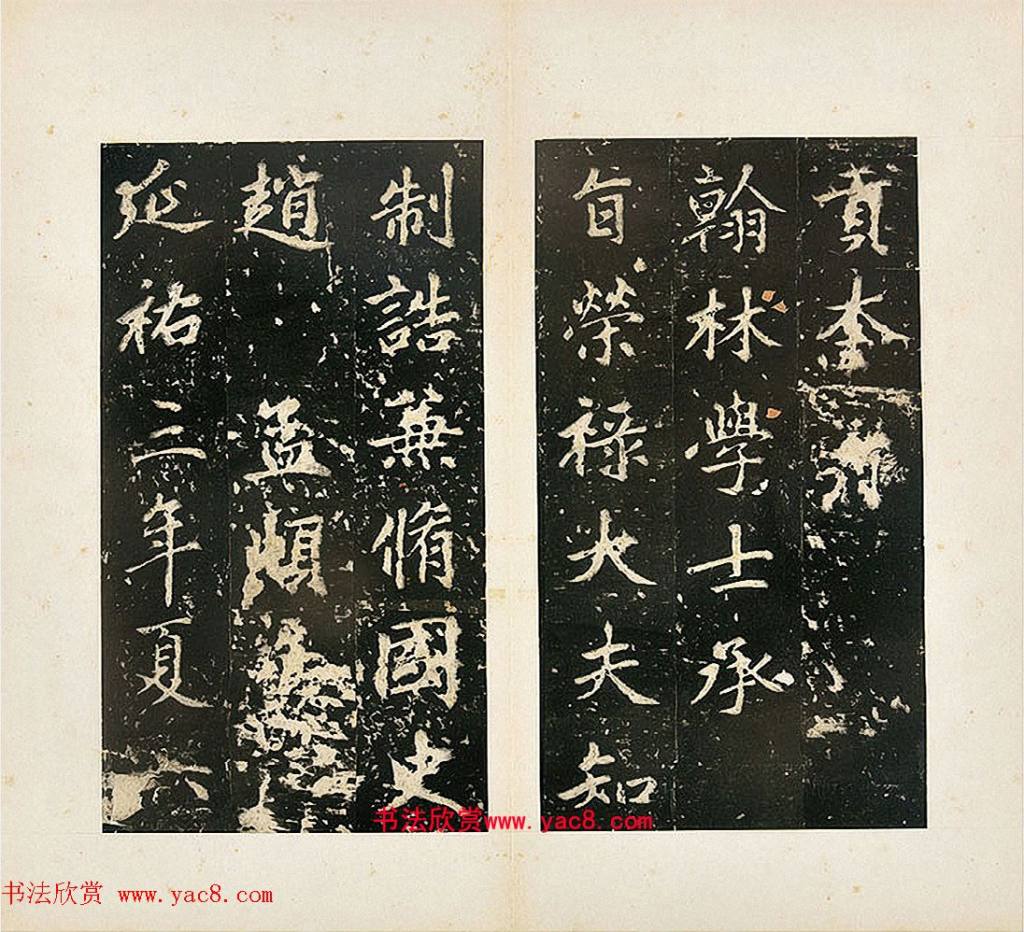 貢奎
翰林學士承
旨榮祿大夫知
制誥兼脩國史
趙孟頫
延祐三年夏六
书法欣赏www.yac8.com
书法欣赏 www.yac8.com